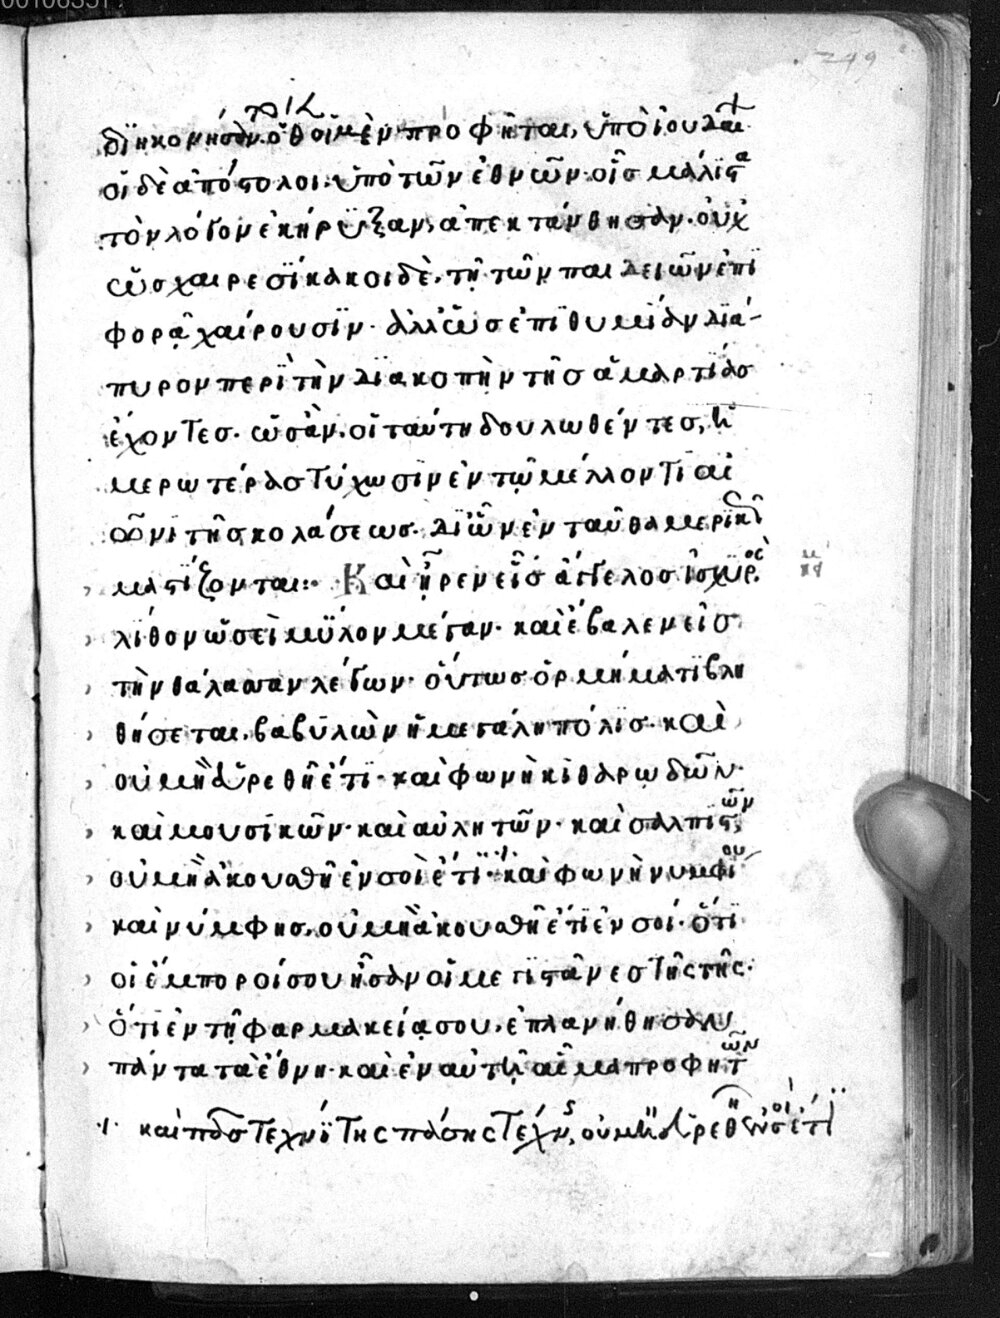 249
διηκονήσαν. ὅθοι μὲν προφῆται, ὑπὸ ἰουδαι
οἱ δὲ ἀπόστολοι, ὑπὸ τῶν ἐθνῶν. οἷσ μάλιστα
τὸν λόγον ἐκήρυξαν, ἀπεκτάνθησαν. οὐχ
ὡσ χαιρεσίκακοι δὲ, τῇ τῶν παιδειῶν ἐπι
φορᾷ χαίρουσιν. ἀλλ' ὡσ ἐπιθυμίαν διά
πυρον περὶ τὴν διακοπὴν τῆσ ἁμαρτίασ
ἔχοντεσ. ὡσ ἂν, οἱ ταύτη δουλωθέντεσ, ἡ
μερωτέρασ τύχωσιν ἐν τῷ μέλλοντι αἰ
ῶνι τῆσ κολάσεωσ. δι' ὧν ἐνταῦθα μερικῶ
ματίζονται: Καὶ ἦρεν εἷσ ἄγγελοσ ἰσχυρὸσ
λίθον ὡσεὶ μύλον μέγαν. καὶ ἔβαλεν εἰσ
τὴν θάλασσαν λέγων. οὕτωσ ὁρμήματι βλη
θήσεται, βαβυλὼν ἡ μεγάλη πόλισ. καὶ
οὐ μὴ εὑρεθῆ ἔτι. καὶ φωνὴ κιθαρῳδῶν.
καὶ μουσικῶν. καὶ αὐλητῶν. καὶ σαλπιστῶν,
οὐ μὴ ἀκουσθῆ ἐν σοὶ ἔτι. καὶ φωνὴ νυμφίου
καὶ νύμφησ, οὐ μὴ ἀκουσθῆ ἔτι ἐν σοί. ὅτι
οἱ ἔμποροί σου ἦσαν οἱ μεγιστᾶνεσ τῆσ γῆσ.
ὅτι ἐν τῇ φαρμακείᾳ σου, ἐπλανήθησαν
πάντα τὰ ἔθνη. καὶ ἐν αὐτῇ αἷμα προφητῶν
καὶ πᾶσ τεχνίτησ πάσησ τέχνησ, οὐ μὴ εὑρεθῆ ἐν σοὶ ἔτι